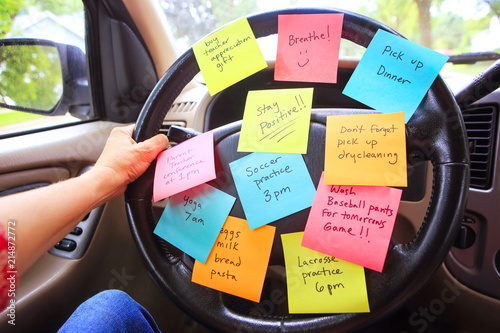 buy
teacher
appreciation
gift
Breathe!
Pick up
Dinner
Stay Positive!!
Don't Forget
pick up
drycleaning
Parent
Teacher
Conference
at 1pm
Soccer
practice
3pm
Wash
Baseball pants
For tomorrows
Game!!
Yoga
7am
eggs
milk
bread
pasta
Lacrosse
practice
6pm
Adobe Stock | #214872772